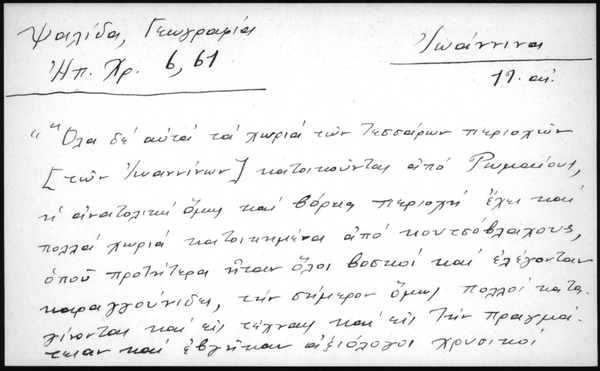 Ψαλίδα, Γεωγραφία
Ἠπ. Χρ. 6, 61
Ἰωάννινα
19. αἰ.
"Ὅλα δὲ αὐτὰ τὰ χωριὰ τῶν τεσσάρων περιοχῶν
[τῶν Ἰωαννίνων] κατοικοῦνται ἀπὸ Ρωμαίους,
ἡ ἀνατολικὴ ὅμως καὶ βόρεια περιοχὴ ἔχει καὶ
πολλὰ χωριὰ κατοικημένα ἀπὸ κουτσοβλάχους,
ὁποῦ προτήτερα ἦταν ὅλοι βοσκοὶ καὶ ἐλέγονταν
καραγγούνιδες, τὴν σήμερον ὅμως πολλοὶ κατα-
γίνονται καὶ εἰς τέχνας καὶ εἰς τὴν πραγμα-
τείαν καὶ ἐβγῆκαν ἀξιόλογοι χρυσικοὶ